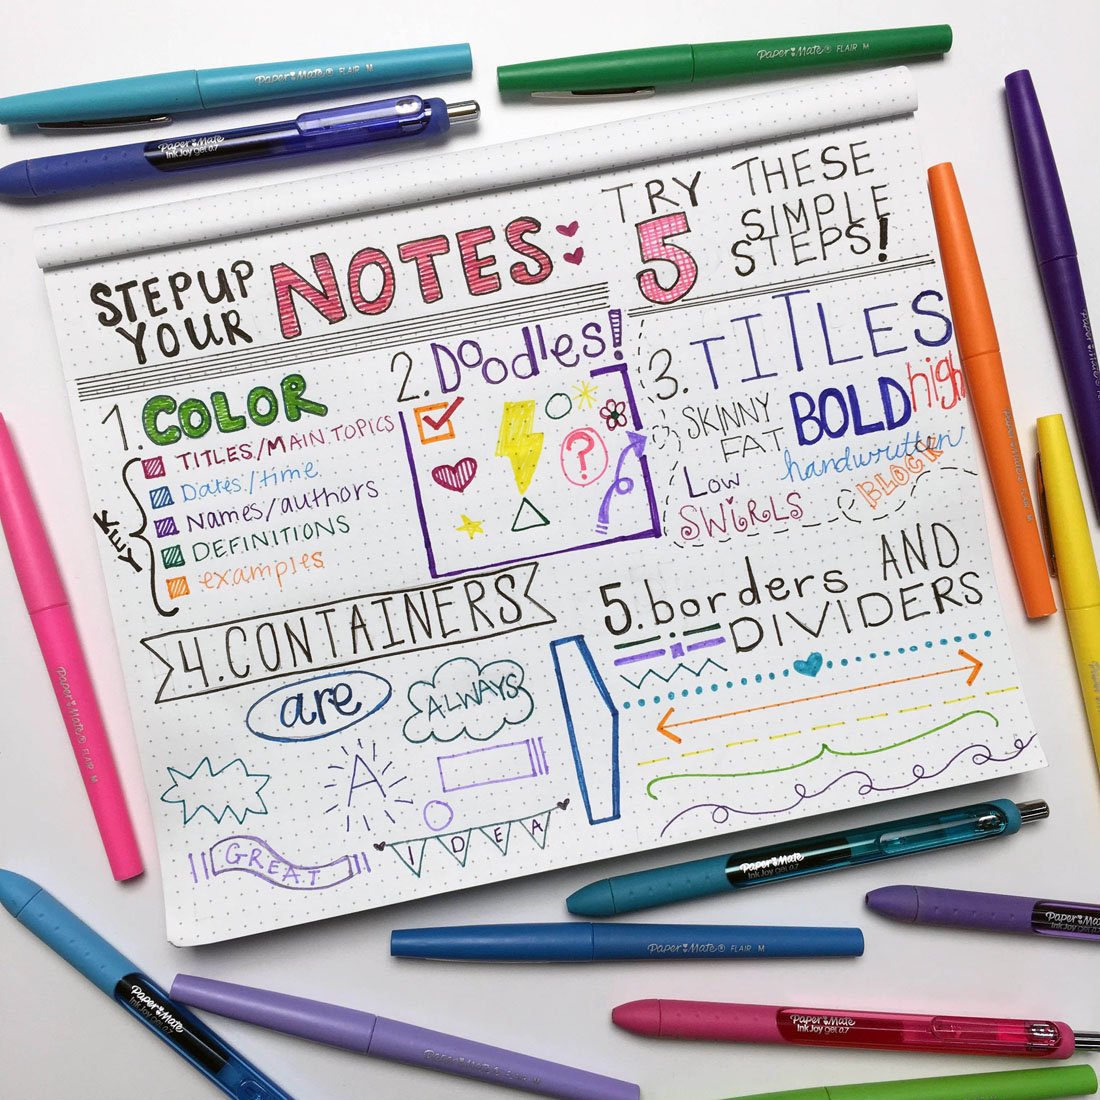 Paper Mate® FLAIR M
Paper Mate
InkJoy gel 0.7
Paper Mate® FLAIR M
STEP UP
YOUR
NOTES
TRY THESE
5 SIMPLE
STEPS!
1. COLOR
KEY
TITLES/MAIN TOPICS
Dates/time
Names/authors
DEFINITIONS
examples
2. Doodles!
?
3. TITLES
SKINNY
FAT
BOLD
high
Low
handwritten
SWIRLS
BLOCK
4. CONTAINERS
are
ALWAYS
A
GREAT
IDEA
5. borders AND
DIVIDERS
Paper Mate® FLAIR M
Paper Mate
InkJoy gel 0.7
Paper Mate
InkJoy gel 0.7
Paper Mate® FLAIR M
Paper Mate
InkJoy gel 0.7
Paper Mate
InkJoy gel 0.7
Paper Mate® FLAIR M